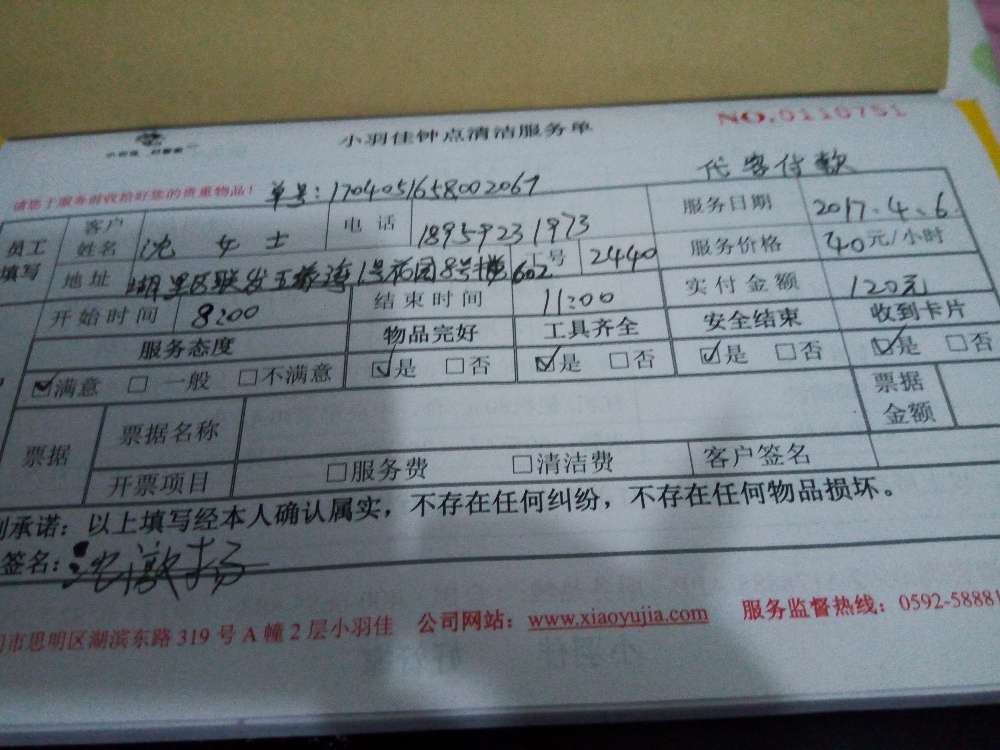 NO.0110751
小羽佳钟点清洁服务单
代客付款
请您于服务前收拾好您的贵重物品! 单号:170405165800206?
员工填写 客户姓名 沈女士 电话 18959231973 服务日期 2017.4.6
地址 湖里区联发五缘湾1号花园8号楼602 工号 2440 服务价格 40元/小时
开始时间 8:00 结束时间 11:00 实付金额 120元
服务态度 物品完好 工具齐全 安全结束 收到卡片
☑满意 □一般 □不满意 ☑是 □否 ☑是 □否 ☑是 □否 ☑是 □否
票据 票据名称 票据金额
开票项目 □服务费 □清洁费 客户签名
承诺:以上填写经本人确认属实,不存在任何纠纷,不存在任何物品损坏。
签名:沈
市思明区湖滨东路319号A幢2层小羽佳 公司网站:www.xiaoyujia.com 服务监督热线:0592-58881